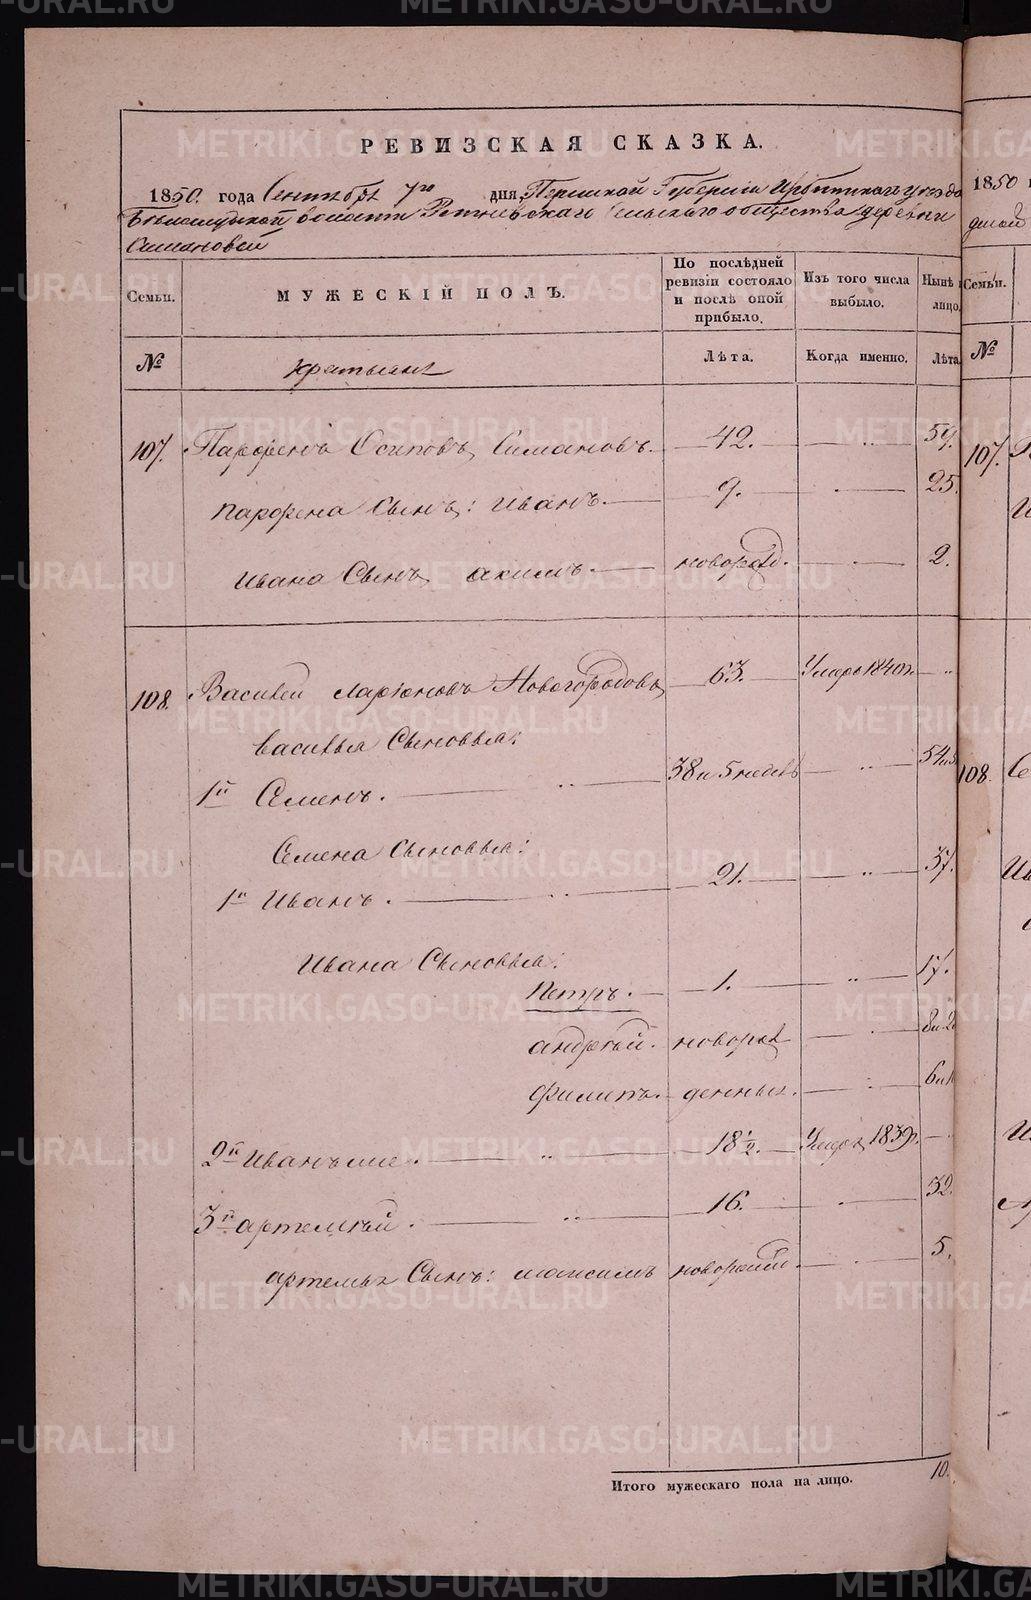 РЕВИЗСКАЯ СКАЗКА.
1850. года Сентября 7го дня, Пермской Губернiи Ирбитскаго уезда
волости Ретневскаго Сельскаго общества деревни
Симановой
Семьи. МУЖЕСКIЙ ПОЛЪ. По послѣдней ревизiи состояло и послѣ оной прибыло. Изъ того числа выбыло. Нынѣ лицо.
№ Крестьяне Лѣта. Когда именно. Лѣта
107. Парфенъ Осиповъ Симановъ. 42. „ 59.
Парфена Сынъ: Иванъ. 9. „ 25.
Ивана Сынъ акимъ. новорожд. „ 2.
108. Василей Ларiоновъ Новогородовъ 63. Умеръ 1840г. „
василья Сыновья:
1й Семенъ. „ 38 и 5 недель „ 54
Семена Сыновья:
1й Иванъ. „ 21. „ 37.
Ивана Сыновья:
Петръ. 1. „ 17.
андрей. новорож „
Филипъ. денныя. „
2й Иванъ же. „ 18½. Умеръ 1839. „
3й артемей. „ 16. „ 32.
артемья Сынъ: максимъ новорожд. „ 5.
Итого мужескаго пола на лицо. 10.
1850
Семьи.
№
107.
108.
METRIKI.GASO-URAL.RU